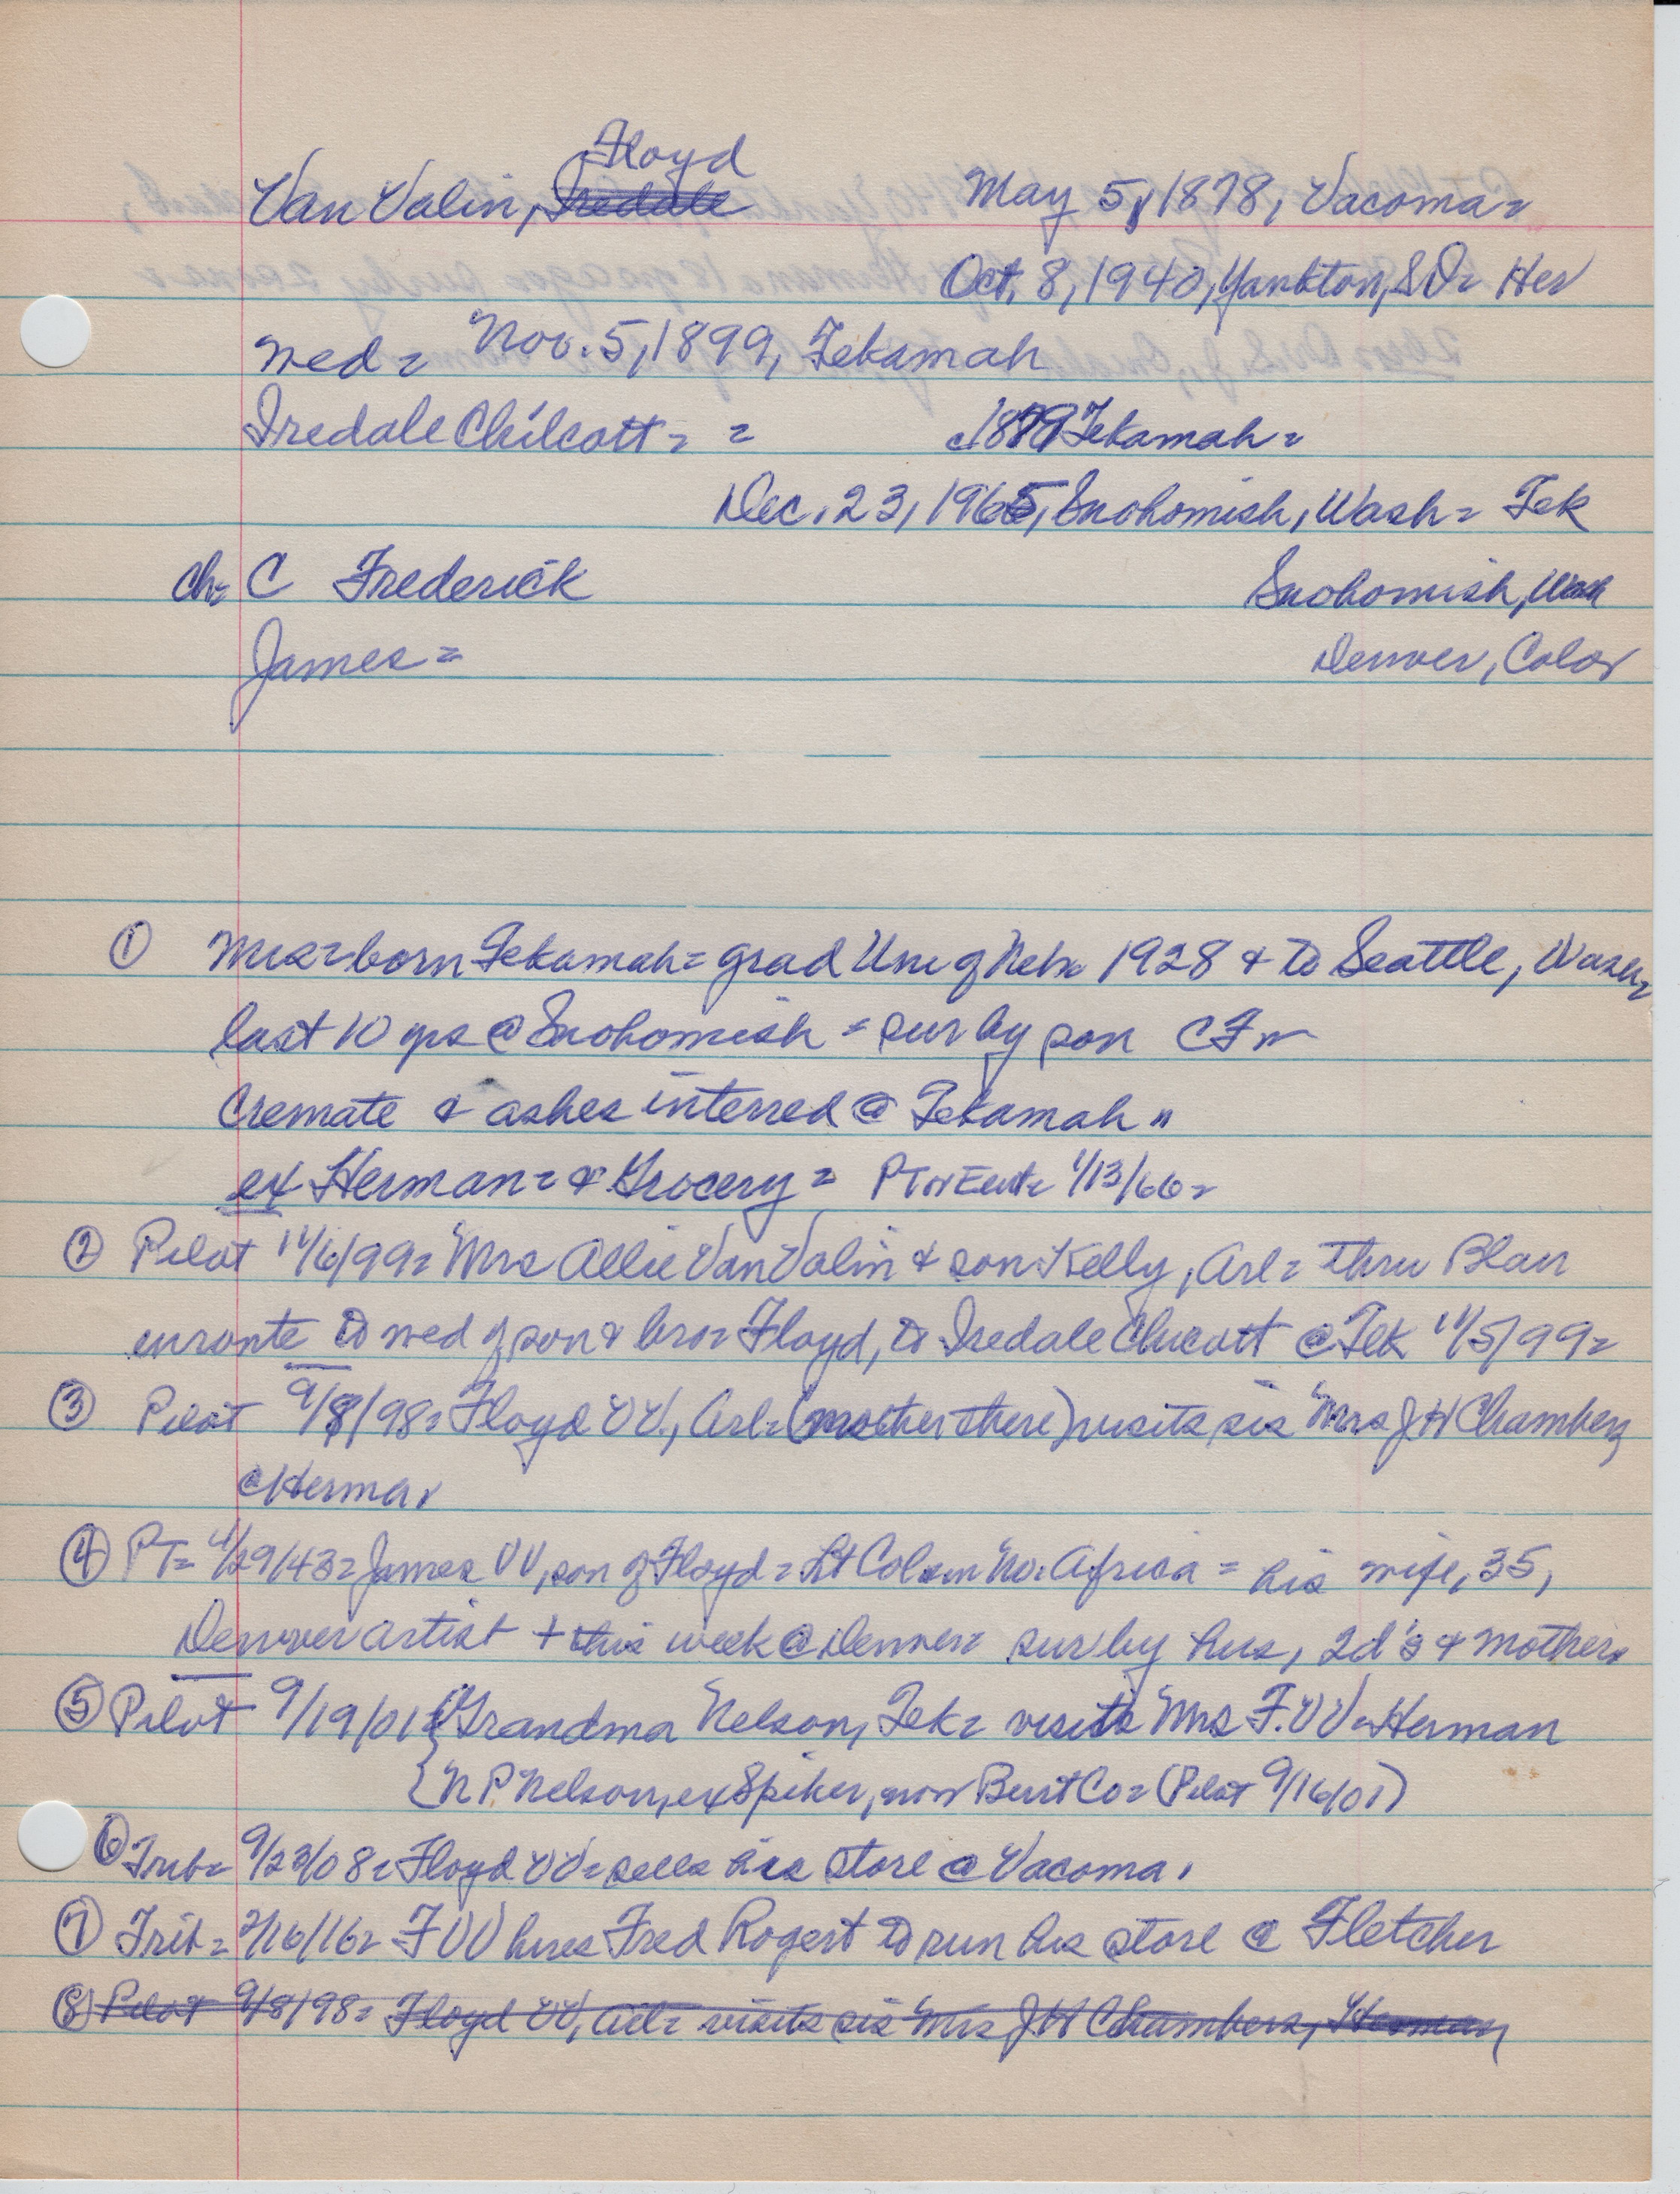 Floyd
Van Valin, Iredale May 5, 1878, Vacoma=
Oct. 8, 1940, Yankton, SD= Her
wed= Nov. 5, 1899, Tekamah
Iredale Chilcott= = c1879 Tekamah=
Dec. 23, 1965, Snohomish, Wash= Tek
ch= C Frederick Snohomish, Wash
James= Denver, Color
① Mrs= born Tekamah= grad Uni of Nebr 1928 & to Seattle, Wash=
last 10 yrs @ Snohomish = sur by son CF=
Cremate & ashes interred @ Tekamah"
ex Herman= & Grocery= PT 1/13/66=
② Pilot 11/6/99= Mrs Allie Van Valin & son Kelly, Arl= thru Blair
enroute to wed of son & bro= Floyd, to Iredale Chicott @ Tek 11/5/99=
③ Pilot 9/8/98= Floyd VV, Arl= (mother there) visits sis Mrs J H Chambers
@ Herman
④ PT= 4/29/43= James VV, son of Floyd= Lt Col in No. Africa = his wife, 35,
Denver artist + this week @ Denver= sur by hus, 2 d's & mother=
⑤ Pilot 9/19/01 { Grandma Nelson, Tek= visits Mrs F. VV= Herman
{ N P Nelson, ex Spiker, now Burt Co= (Pilot 9/16/01)
⑥ Trib= 9/23/08= Floyd VV= sells his store @ Vacoma.
⑦ Trib= 2/16/16= F VV hires Fred Rogert to run his store @ Fletcher
⑧ Pilot 9/8/98= Floyd VV, Arl= visits sis Mrs J H Chambers, Herman